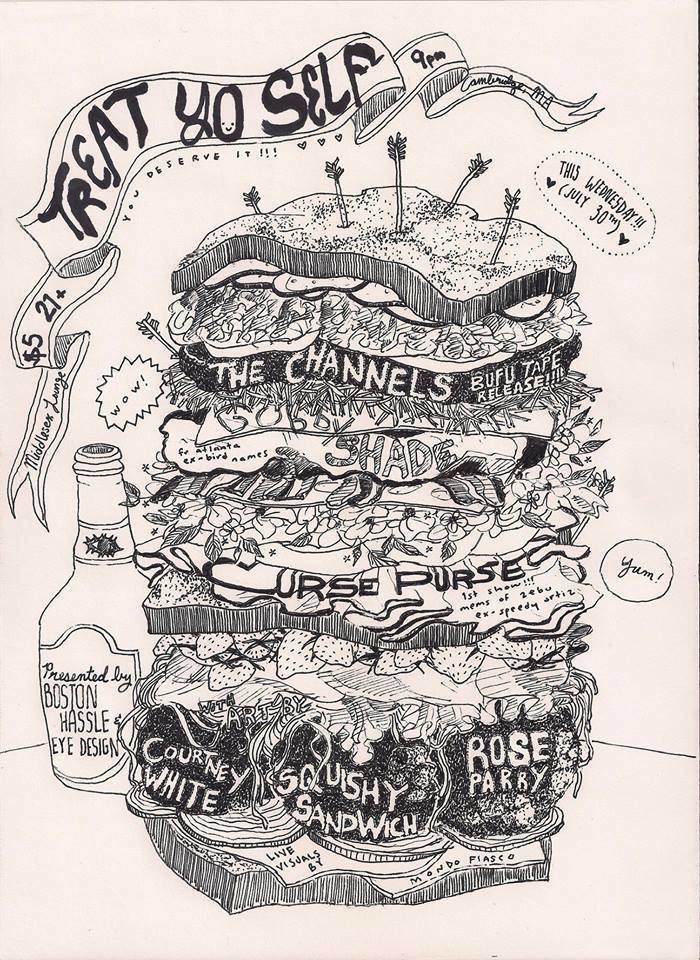 TREAT YO SELF
YOU DESERVE IT!!!
9pm
Cambridge, MA
THIS WEDNESDAY!!!
(JULY 30TH)
$5 21+
Middlesex Lounge
WOW!
THE CHANNELS
BUFU TAPE
RELEASE!!!
GOBBY
SHADE
fr atlanta
ex-bird names
CURSE PURSE
1st show!!!
mems of zebu
ex-speedy ortiz
Yum!
Presented by
BOSTON
HASSLE &
EYE DESIGN
WITH ART BY
COURTNEY
WHITE
SQUISHY
SANDWICH
ROSE
PARRY
LIVE
VISUALS
BY
MONDO FIASCO